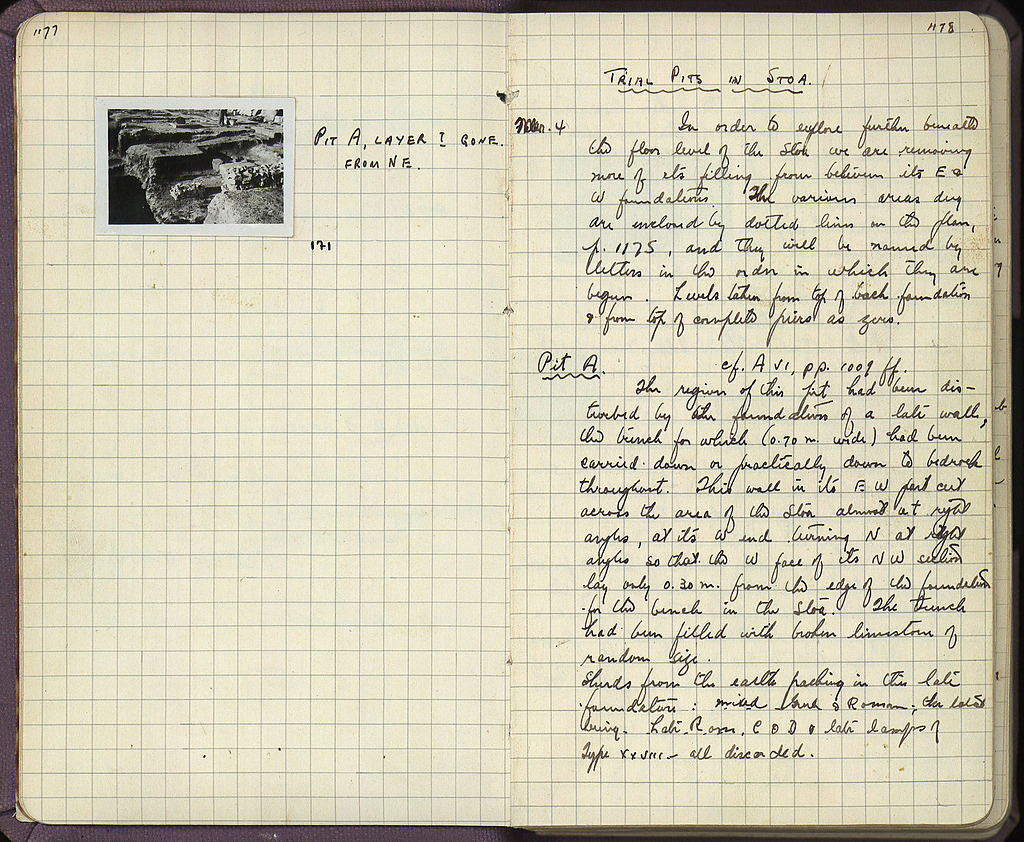 1177
PIT A, LAYER I GONE.
FROM NE.
171
1178
TRIAL PITS IN STOA.
Mar. 4
In order to explore further beneath
the floor level of the Stoa we are removing
more of its filling from between its E &
W foundations. The various areas dug
are enclosed by dotted lines on the plan,
p. 1175, and they will be named by
letters in the order in which they are
begun. Levels taken from top of back foundation
& from top of complete piers as zero.
Pit A. cf. A VI, pp. 1009 ff.
The region of this pit had been dis-
turbed by the foundations of a late wall,
the trench for which (0.70 m. wide) had been
carried down or practically down to bedrock
throughout. This wall in its E W part cut
across the area of the Stoa almost at right
angles, at its W end turning N at right
angles so that the W face of its NW section
lay only 0.30 m. from the edge of the foundation
for the bench in the Stoa. The trench
had been filled with broken limestone of
random size.
Sherds from the earth packing in this late
foundation: mixed Greek & Roman; the latest
being Late Rom. C & D & late lamps of
Type XXVIII – all discarded.